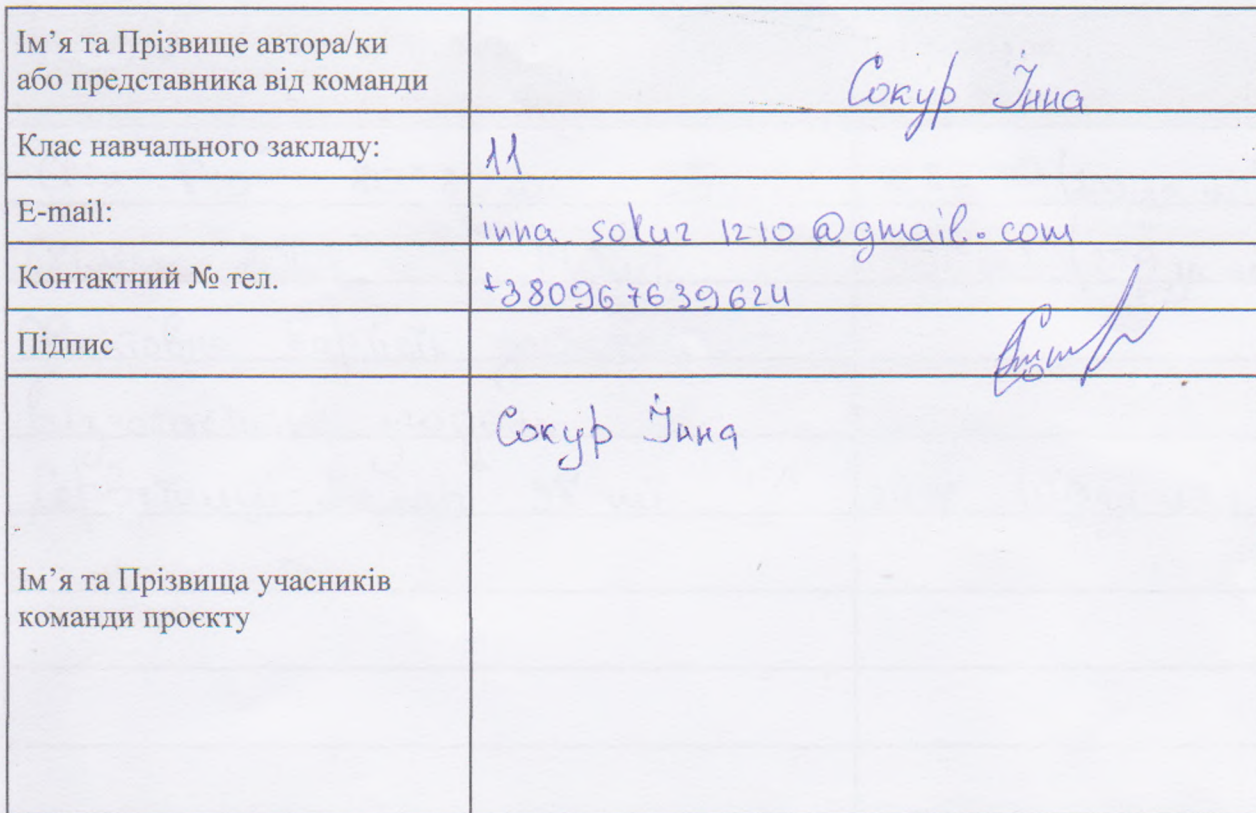 Ім’я та Прізвище автора/ки
або представника від команди
Сокур Інна
Клас навчального закладу:
11
E-mail:
inna sokur 1210@gmail.com
Контактний № тел.
+380967639624
Підпис
Сокур Інна
Ім’я та Прізвища учасників
команди проєкту